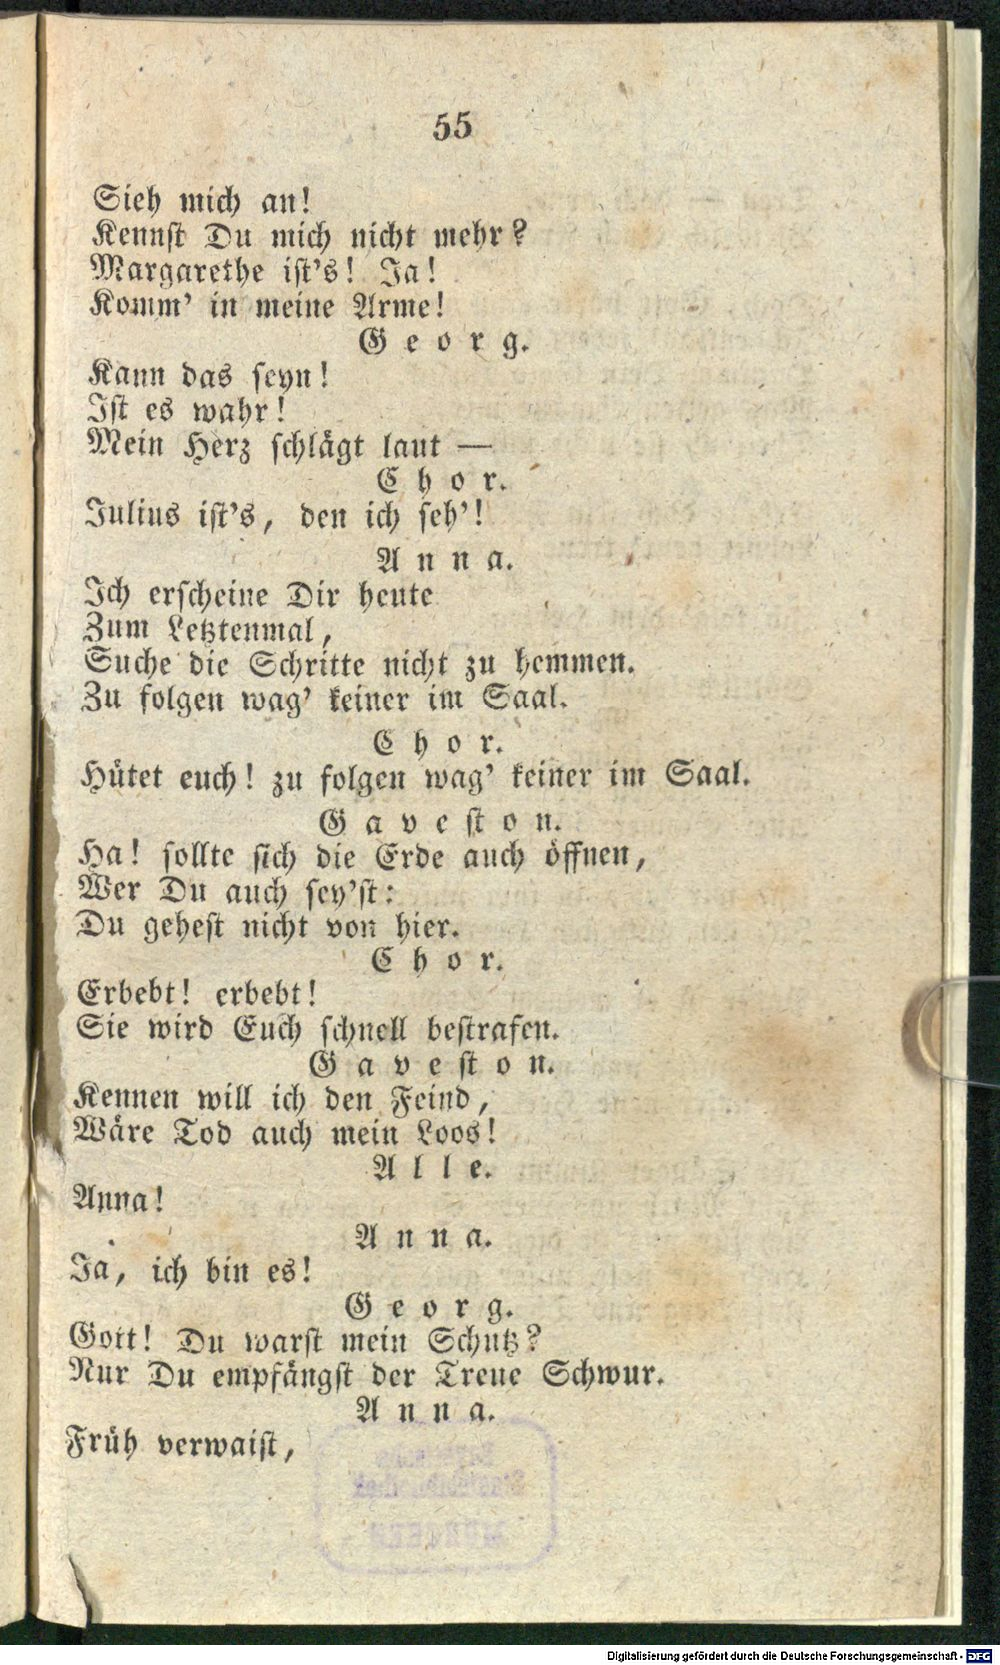 55
Sieh mich an!
Kennst Du mich nicht mehr?
Margarethe ist's! Ja!
Komm' in meine Arme!
Georg.
Kann das seyn!
Ist es wahr!
Mein Herz schlägt laut —
Chor.
Julius ist's, den ich seh'!
Anna.
Ich erscheine Dir heute
Zum Letztenmal,
Suche die Schritte nicht zu hemmen.
Zu folgen wag' keiner im Saal.
Chor.
Hütet euch! zu folgen wag' keiner im Saal.
Gaveston.
Ha! sollte sich die Erde auch öffnen,
Wer Du auch sey'st:
Du gehest nicht von hier.
Chor.
Erbebt! erbebt!
Sie wird Euch schnell bestrafen.
Gaveston.
Kennen will ich den Feind,
Wäre Tod auch mein Loos!
Alle.
Anna!
Anna.
Ja, ich bin es!
Georg.
Gott! Du warst mein Schutz?
Nur Du empfängst der Treue Schwur.
Anna.
Früh verwaist,
Digitalisierung gefördert durch die Deutsche Forschungsgemeinschaft - DFG